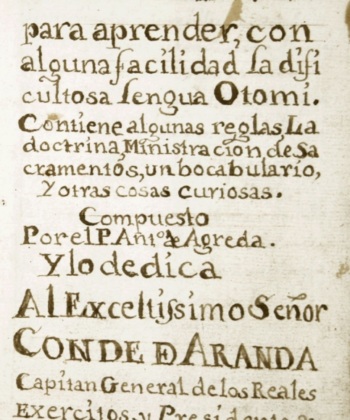 para aprender, con
alguna facilidad la difi
cultosa lengua Otomi.
Contiene algunas reglas, La
doctrina, Ministracion de Sa
cramentos, un bocabulario,
Y otras cosas curiosas.
Compuesto
Por el P. Anto de Agreda.
Y lo dedica
Al Exceltissimo Señor
CONDE DE ARANDA
Capitan General de los Reales
Exercitos, y Presidente